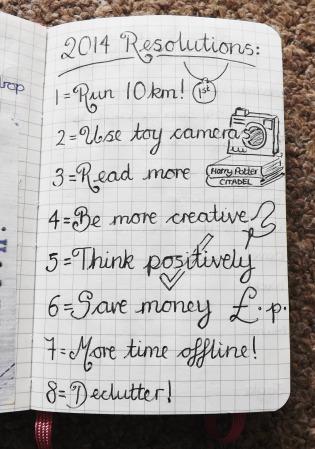 2014 Resolutions:
1=Run 10km! 1st
2=Use toy cameras
3=Read more Harry Potter
CITADEL
4=Be more creative
5=Think positively
6=Save money £.p.
7=More time offline!
8=Declutter!
rop